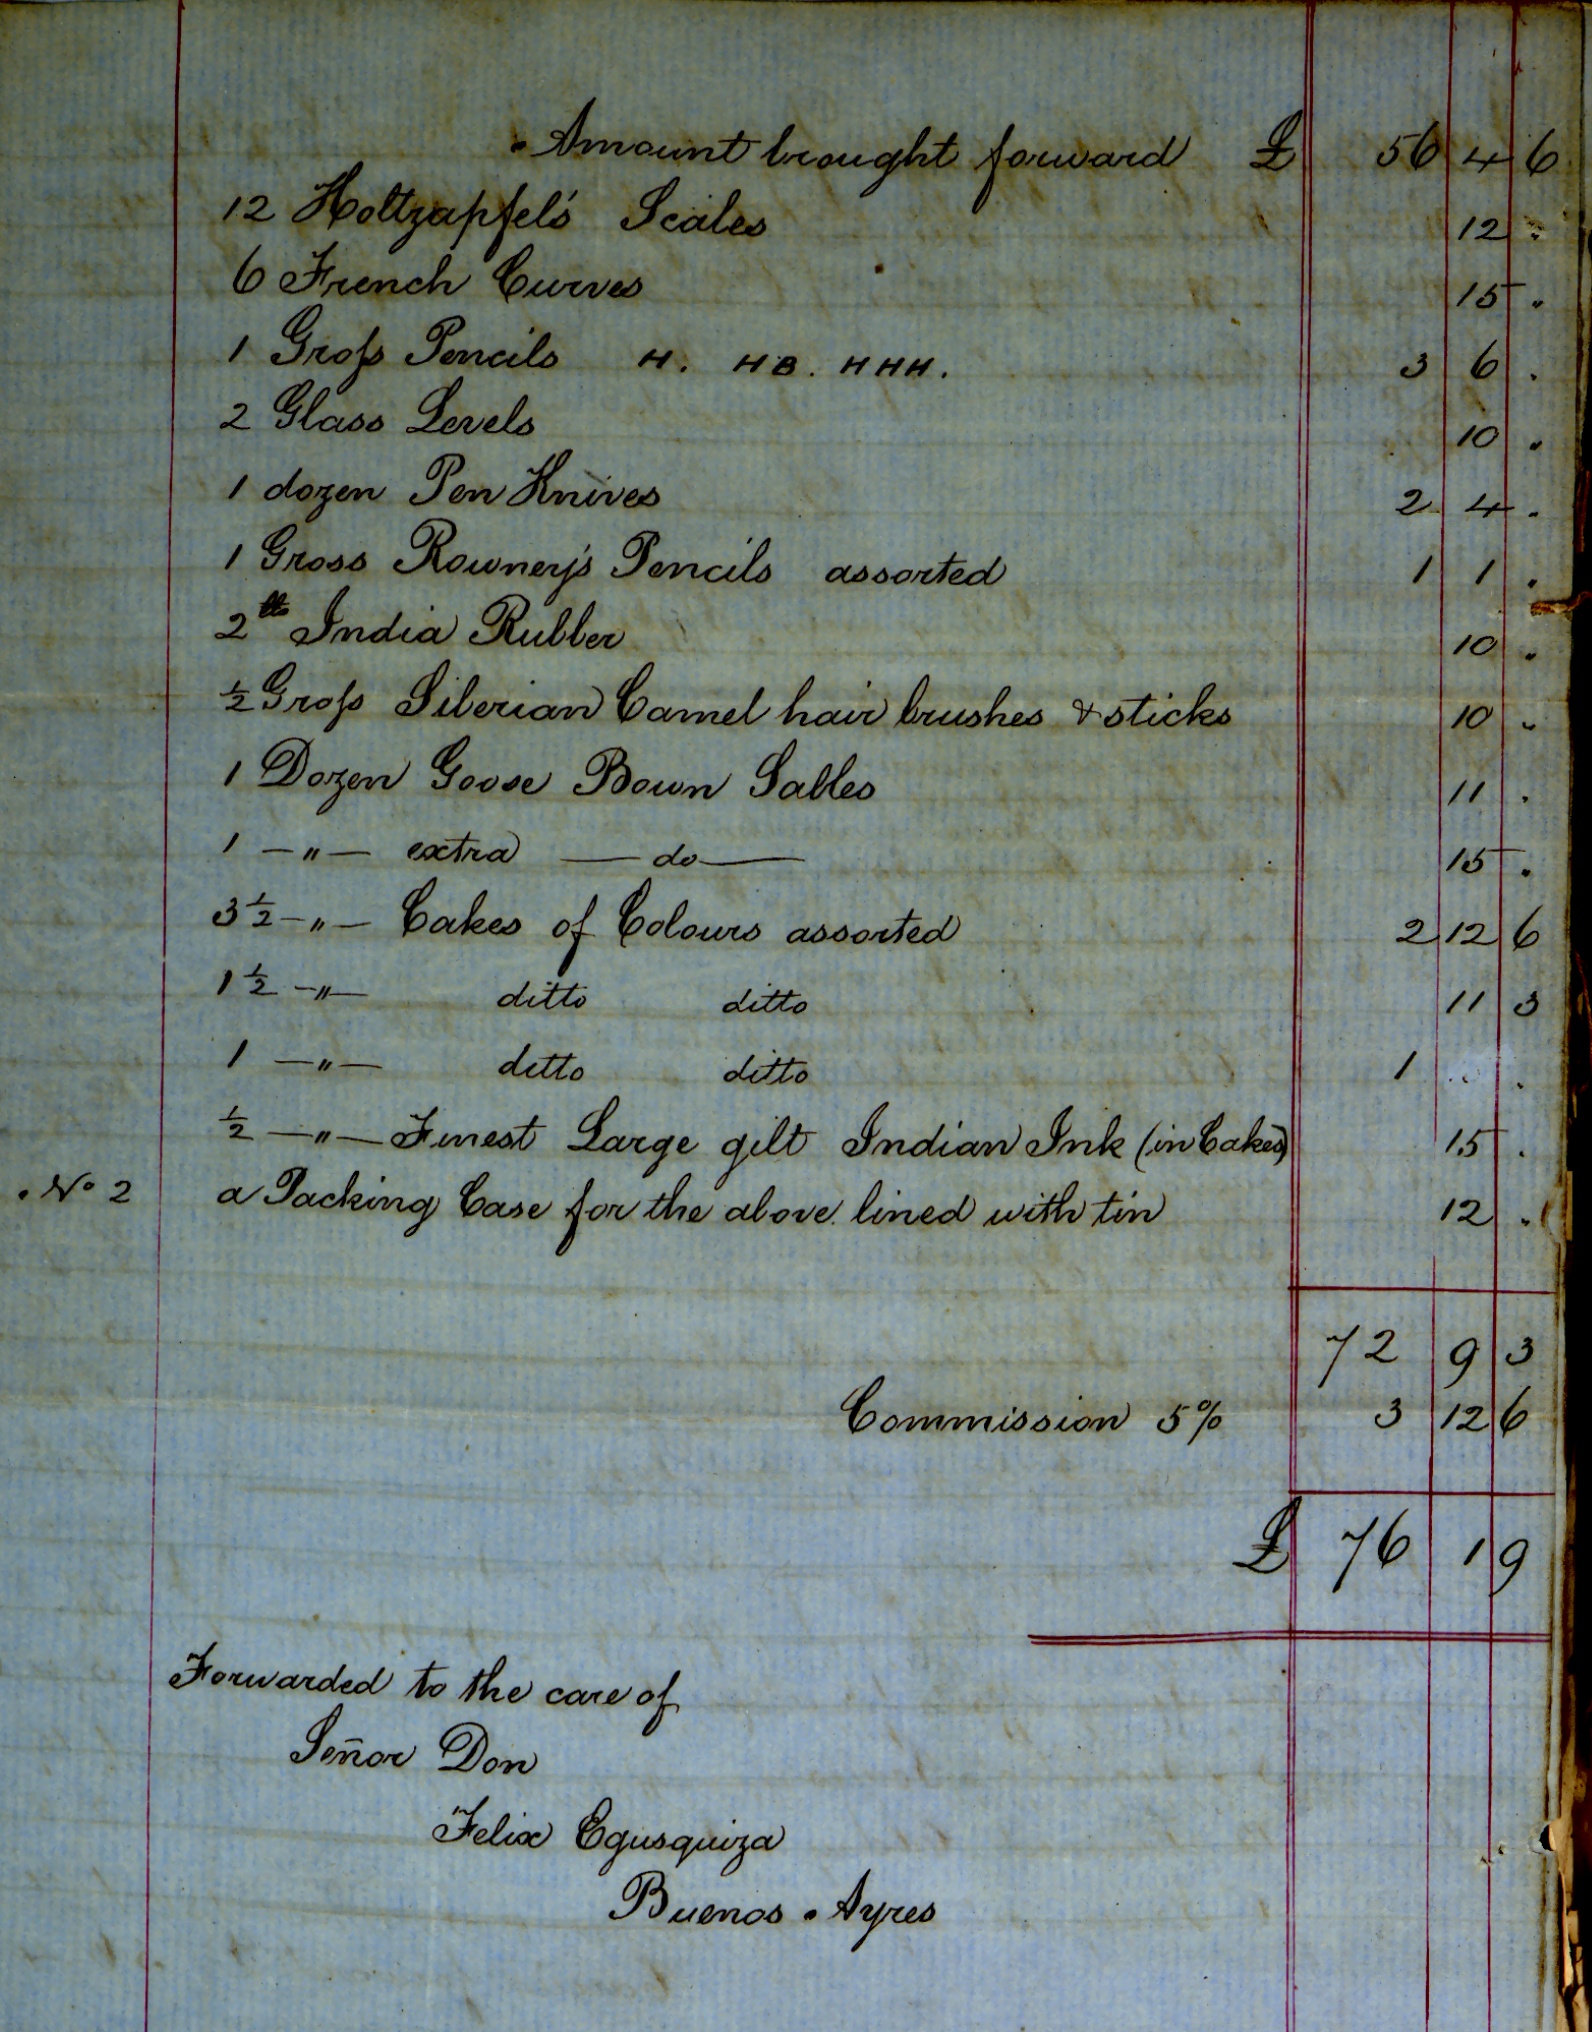 Amount brought forward £ 56 4 6
12 Holtzapfel's Scales 12 .
6 French Curves 15 .
1 Gross Pencils H. HB. HHH. 3 6 .
2 Glass Levels 10 .
1 dozen Pen Knives 2 4 .
1 Gross Rowney's Pencils assorted 1 1 .
2 lb India Rubber 10 .
½ Gross Siberian Camel hair brushes & sticks 10 .
1 Dozen Goose Bown Sables 11 .
1 —„— extra — do — 15 .
3 ½ —„— Cakes of Colours assorted 2 12 6
1 ½ —„— ditto ditto 11 3
1 —„— ditto ditto 1 . .
½ —„— Finest Large gilt Indian Ink (in Cakes) 15 .
No 2 a Packing Case for the above lined with tin 12 .
72 9 3
Commission 5% 3 12 6
£ 76 1 9
Forwarded to the care of
Señor Don
Felix Egusquiza
Buenos Ayres